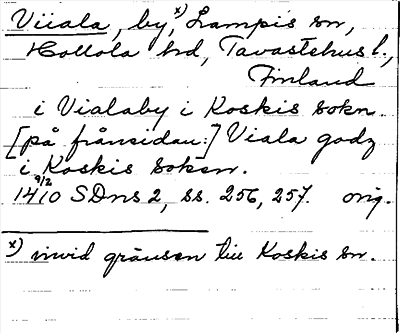 Viiala, by,x) Lampis sn,
Hollola hd, Tavastehus l.,
Finland
i Vialaby i Koskis sokn.
[på frånsidan:] Viala godz
i Koskis soken.
9/2
1410 SDns 2, ss. 256, 257. orig.
x) invid gränsen till Koskis sn.